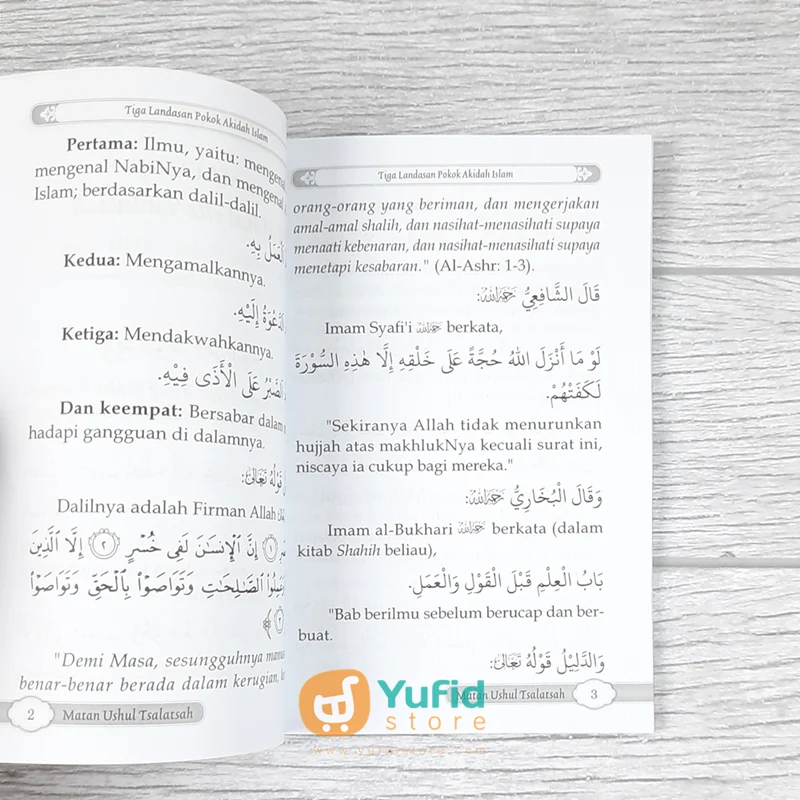 Tiga Landasan Pokok Akidah Islam
Pertama: Ilmu, yaitu:
mengenal NabiNya, dan mengenal
Islam; berdasarkan dalil-dalil.
الْعَمَلُ بِهِ.
Kedua: Mengamalkannya.
الدَّعْوَةُ إِلَيْهِ.
Ketiga: Mendakwahkannya.
الصَّبْرُ عَلَى الْأَذَى فِيْهِ.
Dan keempat: Bersabar dalam
hadapi gangguan di dalamnya.
قَوْلُهُ تَعَالَى:
Dalilnya adalah Firman Allah
﴿١﴾ إِنَّ ٱلْإِنسَـٰنَ لَفِى خُسْرٍ ﴿٢﴾ إِلَّا ٱلَّذِينَ
ٱلصَّـٰلِحَـٰتِ وَتَوَاصَوْا۟ بِٱلْحَقِّ وَتَوَاصَوْا۟
﴿٣﴾
"Demi Masa, sesungguhnya
benar-benar berada dalam kerugian,
2 Matan Ushul Tsalatsah
Tiga Landasan Pokok Akidah Islam
orang-orang yang beriman, dan mengerjakan
amal-amal shalih, dan nasihat-menasihati supaya
menaati kebenaran, dan nasihat-menasihati supaya
menetapi kesabaran." (Al-Ashr: 1-3).
قَالَ الشَّافِعِيُّ رَحِمَهُ اللهُ:
Imam Syafi'i رَحِمَهُ اللهُ berkata,
لَوْ مَا أَنْزَلَ اللهُ حُجَّةً عَلَى خَلْقِهِ إِلَّا هٰذِهِ السُّوْرَةَ
لَكَفَتْهُمْ.
"Sekiranya Allah tidak menurunkan
hujjah atas makhlukNya kecuali surat ini,
niscaya ia cukup bagi mereka."
وَقَالَ الْبُخَارِيُّ رَحِمَهُ اللهُ:
Imam al-Bukhari رَحِمَهُ اللهُ berkata (dalam
kitab Shahih beliau),
بَابُ الْعِلْمِ قَبْلَ الْقَوْلِ وَالْعَمَلِ.
"Bab berilmu sebelum berucap dan ber-
buat.
وَالدَّلِيْلُ قَوْلُهُ تَعَالَى:
Matan Ushul Tsalatsah 3
Yufid
store
www.yufidstore.com